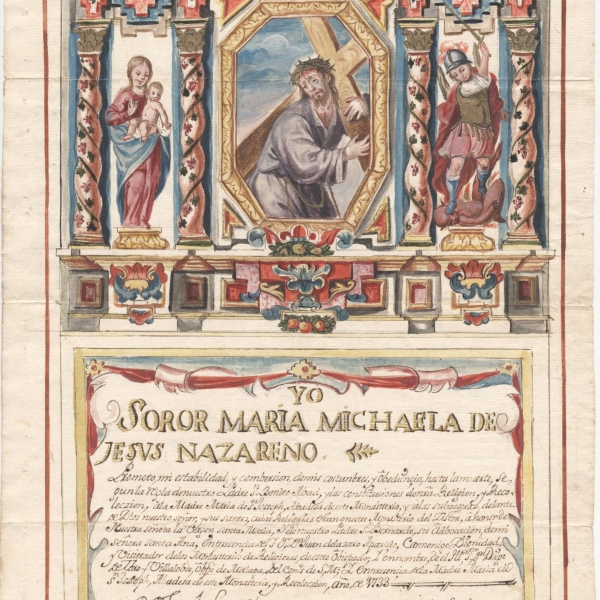 YO
SOROR MARÍA MICHAELA DE
JESVS NAZARENO.
Prometo, mi estabilidad, y combersion, demis costunbres, y obediençia, hasta lamuerte, se
gun la regla denuestro Padre S. Benito Abad, y las constituciones de esta Religion, y Reco
leczion, à la Madre Maria de S. Joseph, Abadesa de este Monasterio, y à las subçesoras delante
de Dios nuestro señor, y sus santos, cuias Reliquias
Nuestra señora la Virgen Santa Maria, y de nuestro Padre S. Bernardo,
señora santa Ana, En presencia del S. D. Juan de Lazaro Canonigo Dignidad,
y Visitador de los Monasterios de Religiosas de este Obispado, En nombre, de el
de Toro y Villalobos, Obpo de Malaga, del Cons. de S. M. En presencia, de la Madre Maria
S. Joseph, Abadesa de este Monasterio, y Recoleczion, año, de 1738